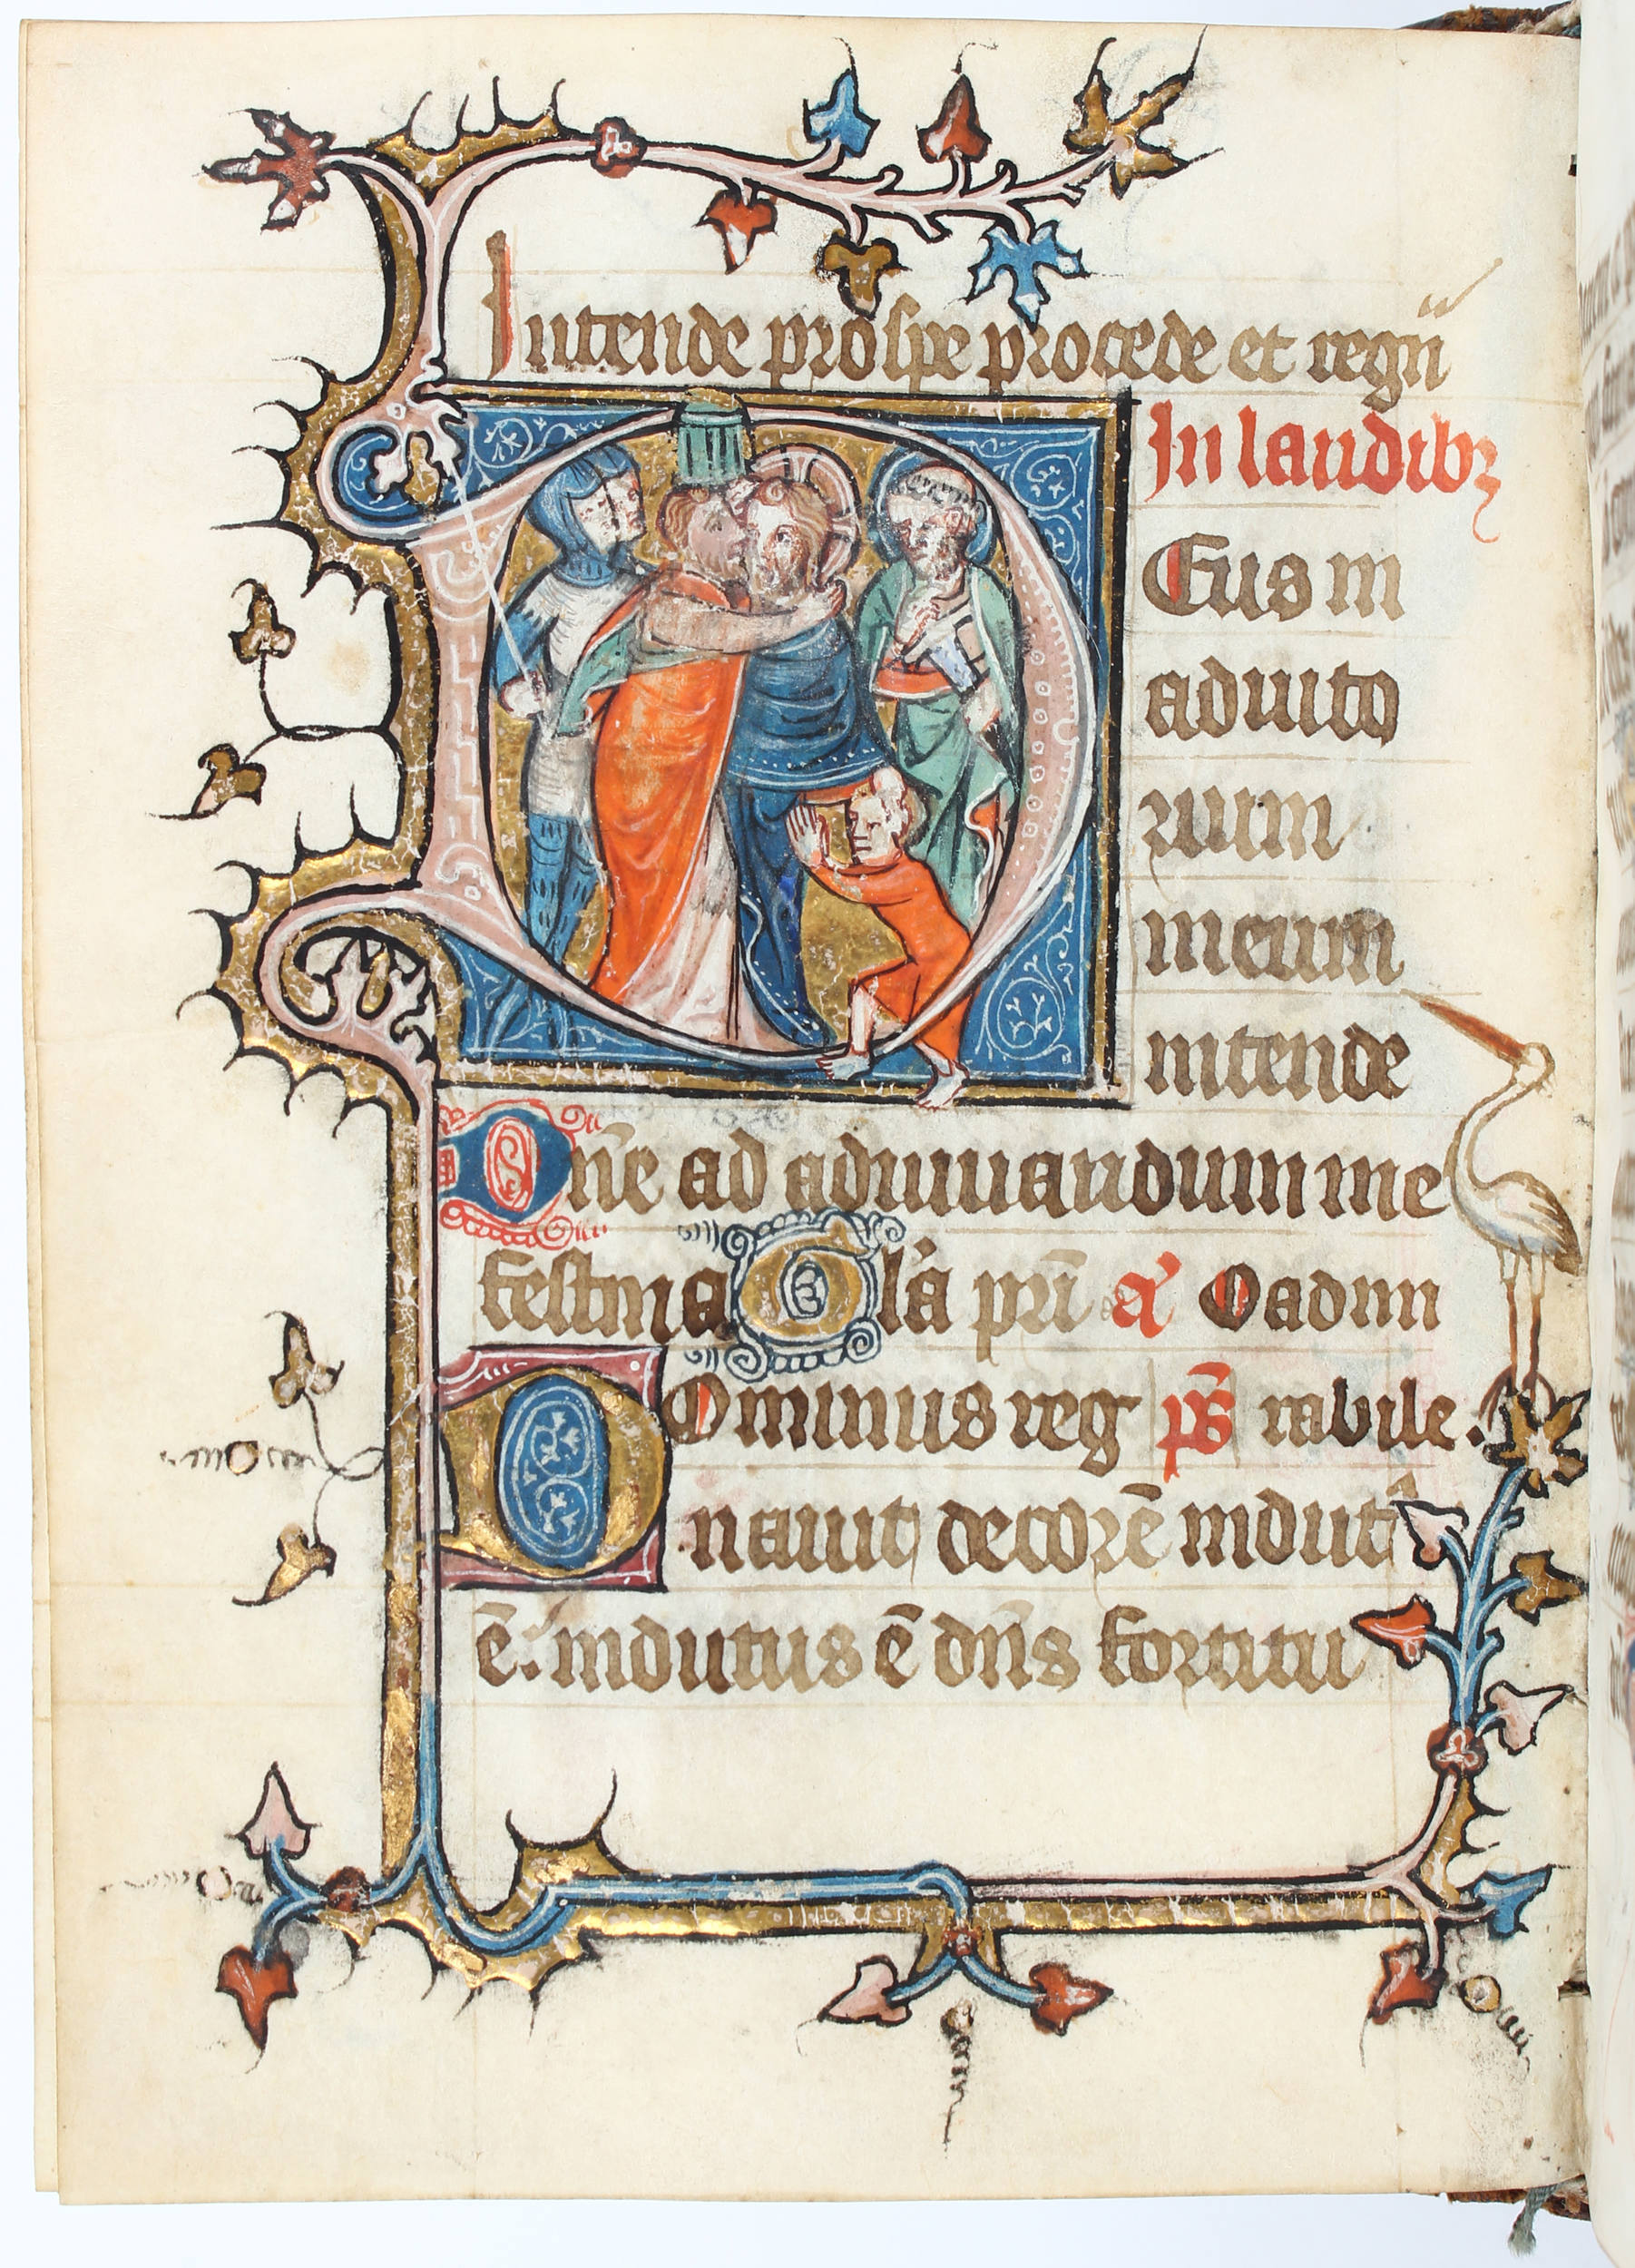 Intende prospe procede et regn̄
In laudibꝫ
Eus in
adiuto
rium
meum
intende
Dn̄e ad adiuuandum me
festina Gl'a pri̅ a' O admi
Dominus reg ps̄ rabile.
nauit decorē indut'
ē. indutus ē dn̄s fortitu